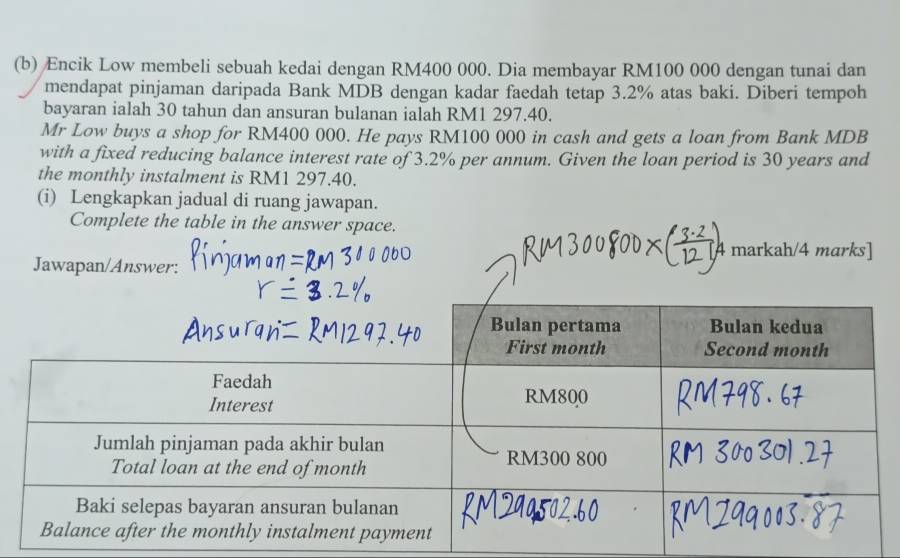 (b) Encik Low membeli sebuah kedai dengan RM400 000. Dia membayar RM100 000 dengan tunai dan
mendapat pinjaman daripada Bank MDB dengan kadar faedah tetap 3.2% atas baki. Diberi tempoh
bayaran ialah 30 tahun dan ansuran bulanan ialah RM1 297.40.
Mr Low buys a shop for RM400 000. He pays RM100 000 in cash and gets a loan from Bank MDB
with a fixed reducing balance interest rate of 3.2% per annum. Given the loan period is 30 years and
the monthly instalment is RM1 297.40.
(i) Lengkapkan jadual di ruang jawapan.
Complete the table in the answer space.
RM300800×(3.2/12) 4 markah/4 marks]
Jawapan/Answer: Pinjaman=RM300000
r = 3.2%
Ansuran= RM1297.40
Bulan pertama Bulan kedua
First month Second month
Faedah
Interest RM800 RM798.67
Jumlah pinjaman pada akhir bulan
Total loan at the end of month RM300 800 RM 300301.27
Baki selepas bayaran ansuran bulanan
Balance after the monthly instalment payment RM299502.60 RM299003.87